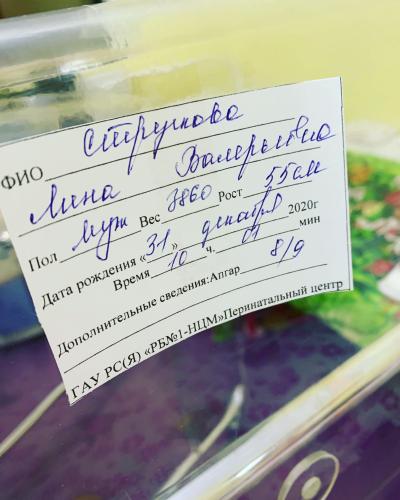 ФИО Стручкова
Лина Валерьевна
Пол муж Вес 3860 Рост 55 см
Дата рождения «31» декабря 2020г
Время 10 ч. 01 мин
Дополнительные сведения:Апгар 8/9
ГАУ РС(Я) «РБ№1-НЦМ»Перинатальный центр